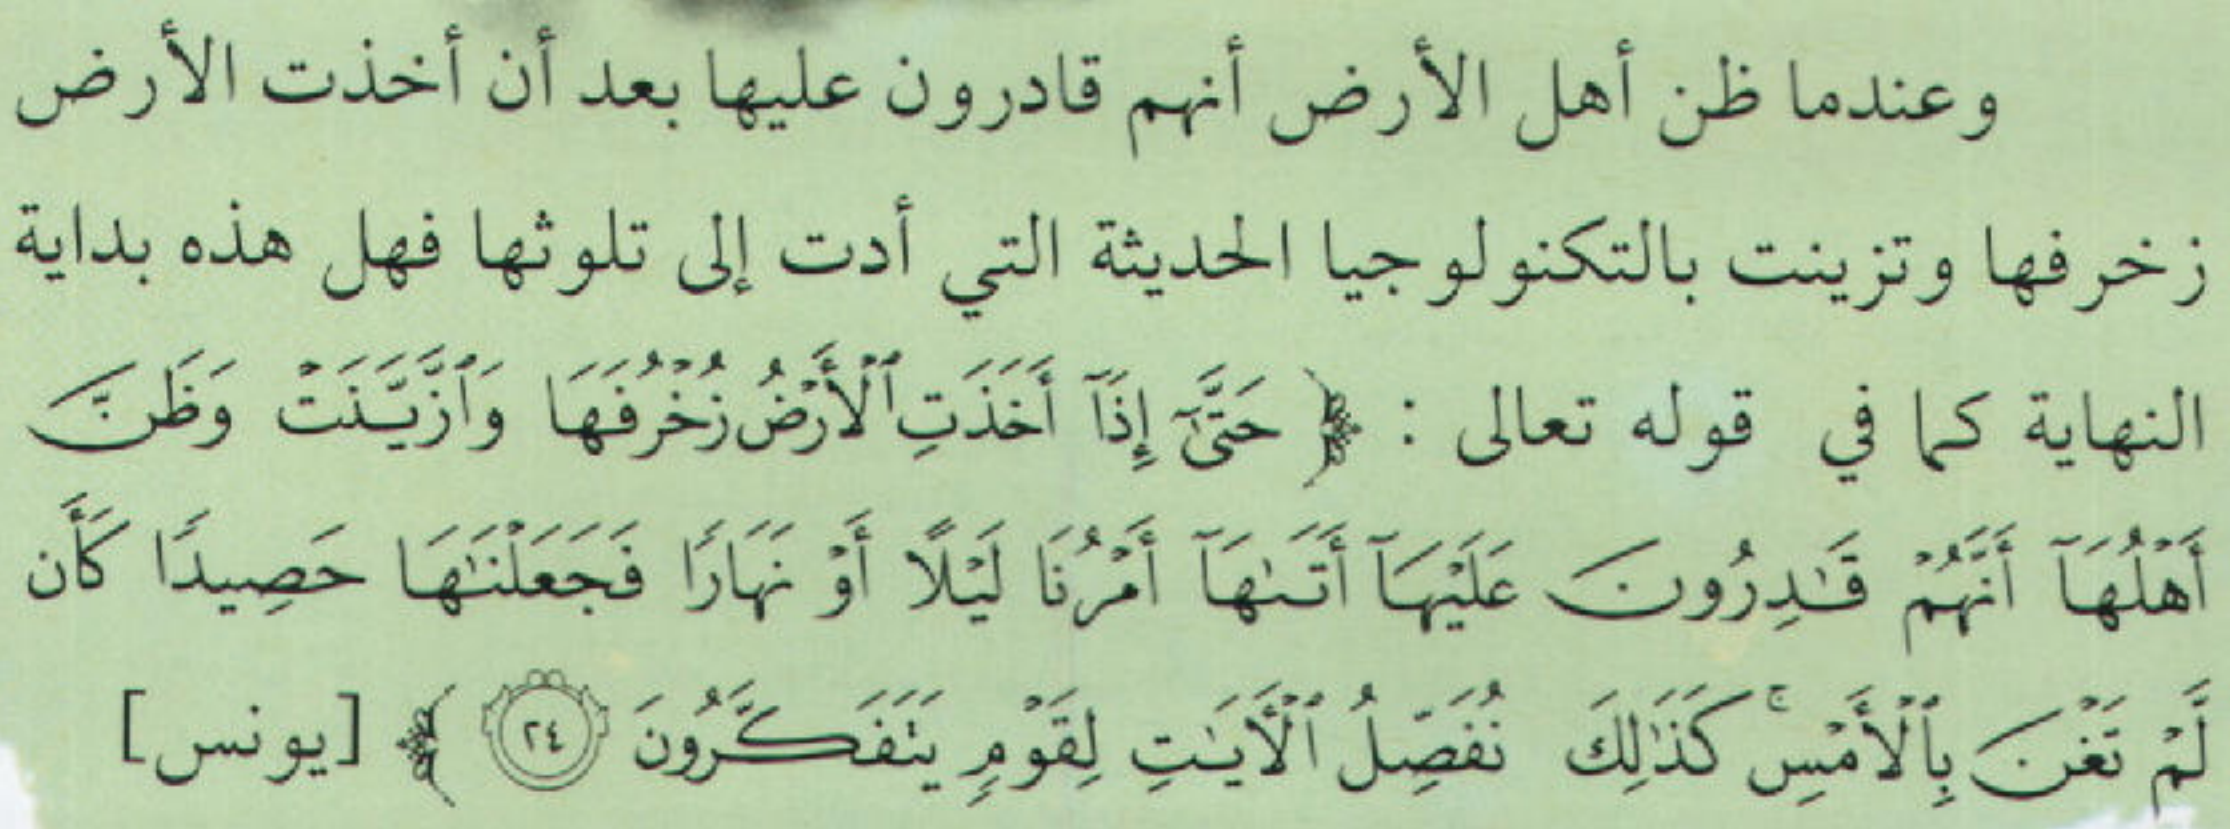 وعندما ظن أهل الأرض أنهم قادرون عليها بعد أن أخذت الأرض
زخرفها وتزينت بالتكنولوجيا الحديثة التي أدت إلى تلوثها فهل هذه بداية
النهاية كما في قوله تعالى : ﴿ حَتَّىٰٓ إِذَآ أَخَذَتِ ٱلْأَرْضُ زُخْرُفَهَا وَٱزَّيَّنَتْ وَظَنَّ
أَهْلُهَآ أَنَّهُمْ قَـٰدِرُونَ عَلَيْهَآ أَتَىٰهَآ أَمْرُنَا لَيْلًا أَوْ نَهَارًا فَجَعَلْنَـٰهَا حَصِيدًا كَأَن
لَّمْ تَغْنَ بِٱلْأَمْسِ ۚ كَذَٰلِكَ نُفَصِّلُ ٱلْأَيَـٰتِ لِقَوْمٍ يَتَفَكَّرُونَ ٢٤ ﴾ [يونس]